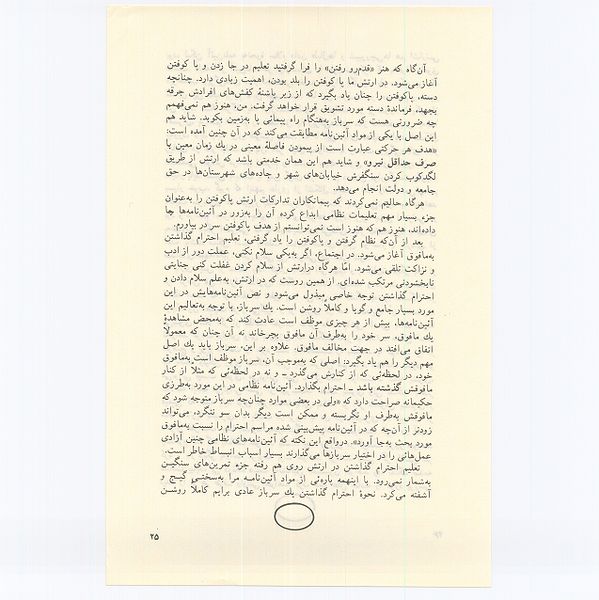 آن‌گاه که هنر «قدم‌رو رفتن» را فرا گرفتید تعلیم در جا زدن و پا کوفتن
آغاز می‌شود. در ارتش ما پا کوفتن را بلد بودن، اهمیت زیادی دارد. چنانچه
دسته، پاکوفتن را چنان یاد بگیرد که از زیر پاشنهٔ کفش‌های افرادش جرقه
بجهد، فرماندهٔ دسته مورد تشویق قرار خواهد گرفت. من، هنوز هم نمی‌فهمم
چه ضرورتی هست که سرباز به‌هنگام راه پیمائی پا به‌زمین بکوبد. شاید هم
این اصل با یکی از مواد آئین‌نامه مطابقت می‌کند که در آن چنین آمده است:
«هدف هر حرکتی عبارت است از پیمودن فاصلهٔ معینی در یك زمان معین با
صرف حداقل نیرو» و شاید هم این همان خدمتی باشد که ارتش از طریق
لگدکوب کردن سنگفرش خیابان‌های شهر و جاده‌های شهرستان‌ها در حق
جامعه و دولت انجام می‌دهد.
هرگاه حالیم نمی‌کردند که پیمانکاران تدارکات ارتش پاکوفتن را به‌عنوان
جزء بسیار مهم تعلیمات نظامی ابداع کرده آن را به‌زور در آئین‌نامه‌ها جا
داده‌اند، هنوز هم که هنوز است نمی‌توانستم از هدف پاکوفتن سر در بیاورم.
بعد از آن‌که نظام گرفتن و پاکوفتن را یاد گرفتی، تعلیم احترام گذاشتن
به‌مافوق آغاز می‌شود. در اجتماع، اگر به‌یکی سلام نکنی، عملت دور از ادب
و نزاکت تلقی می‌شود. امّا هرگاه درارتش از سلام کردن غفلت کنی جنایتی
نابخشودنی مرتکب شده‌ای. از همین روست که در ارتش، به‌علم سلام دادن و
احترام گذاشتن توجه خاصی مبذول می‌شود و نص آئین‌نامه‌هایش در این
مورد بسیار جامع و گویا و کاملاً روشن است. یك سرباز، با توجه به‌تعالیم این
آئین‌نامه‌ها، بیش از هر چیزی موظف است عادت کند که به‌محض مشاهدهٔ
یك مافوق، سر خود را به‌طرف آن مافوق بچرخاند نه آن چنان که معمولاً
اتفاق می‌افتد در جهت مخالف مافوق. علاوه بر این، سرباز باید یك اصل
مهم دیگر را هم یاد بگیرد: اصلی که به‌موجب آن، سرباز موظف است به‌مافوق
خود، در لحظه‌ئی که از کنارش می‌گذرد ــ و نه در لحظه‌ئی که مثلا از کنار
مافوقش گذشته باشد ــ احترام بگذارد. آئین‌نامه نظامی در این مورد به‌طرزی
حکیمانه صراحت دارد که «ولی در بعضی موارد چنان‌چه سرباز متوجه شود که
مافوقش به‌طرف او نگریسته و ممکن است دیگر بدان سو ننگرد، می‌تواند
زودتر از آن‌چه که در آئین‌نامه پیش‌بینی شده مراسم احترام را نسبت به‌مافوق
مورد بحث به‌جا آورد». درواقع این نکته که آئین‌نامه‌های نظامی چنین آزادی
عمل‌هائی را در اختیار سربازها می‌گذارند بسیار اسباب انبساط خاطر است.
تعلیم احترام گذاشتن در ارتش روی هم رفته جزء تمرین‌های سنگین
به‌شمار نمی‌رود. با اینهمه پاره‌ئی از مواد آئین‌نامـه مرا به‌سختـی گیـج و
آشفته می‌کرد. نحوهٔ احترام گذاشتن یك سرباز عادی برایم کاملاً روشـن
۲۵